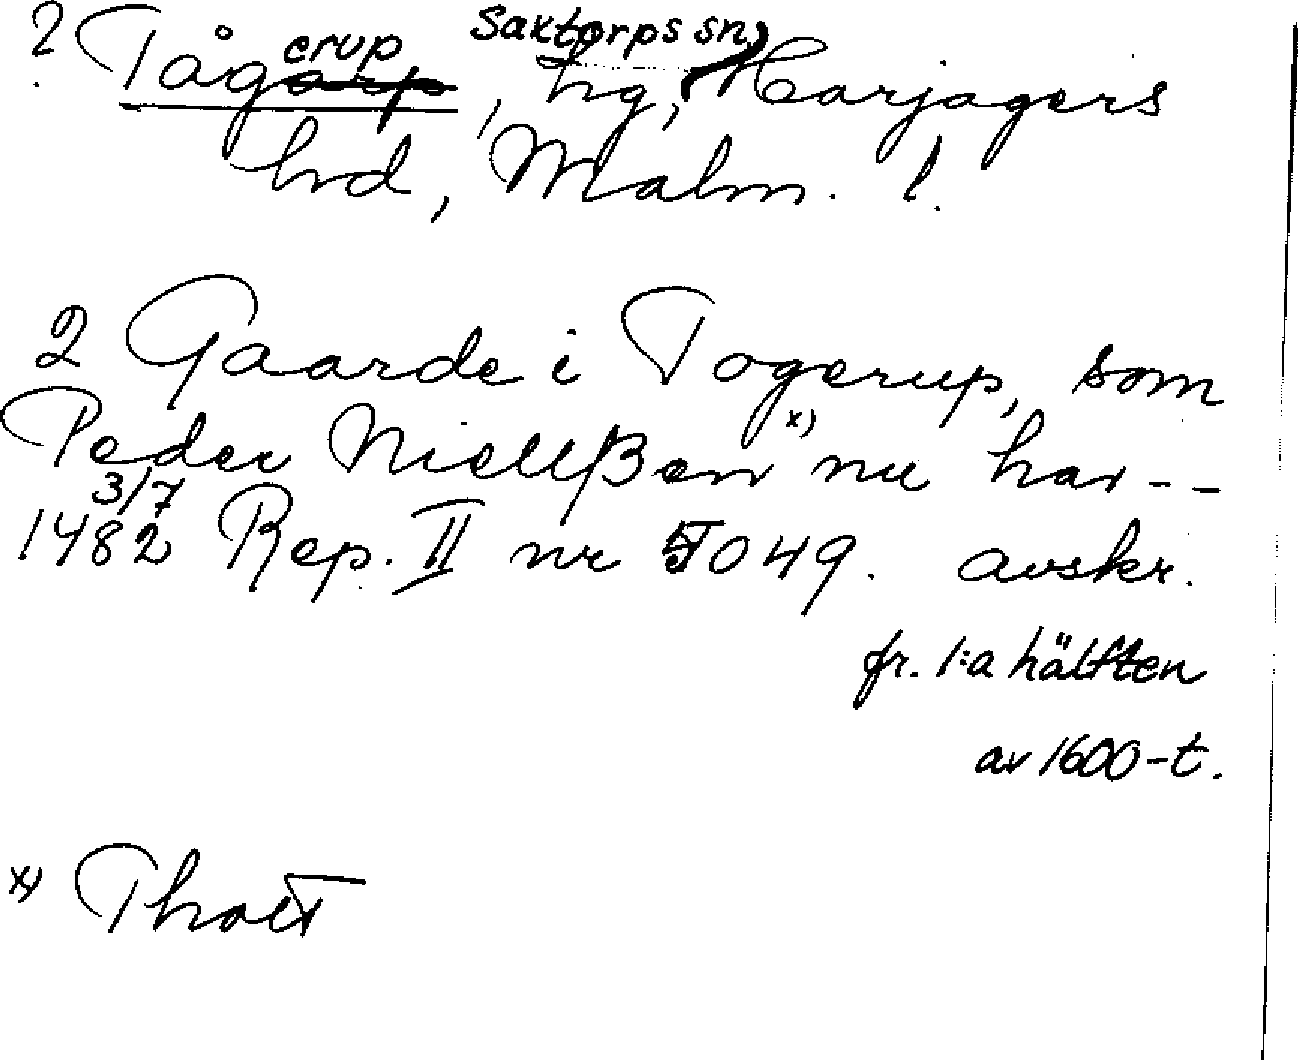 ? Tågerup, Saxtorps sn,
hg, Harjagers
hrd, Malm. l.
2 Gaarde i Togerup, som
Peder Niellßen x) nu har - -
3/7
1482 Rep. II nr 5049. avskr.
fr. 1:a hälften
av 1600-t.
x) Thott